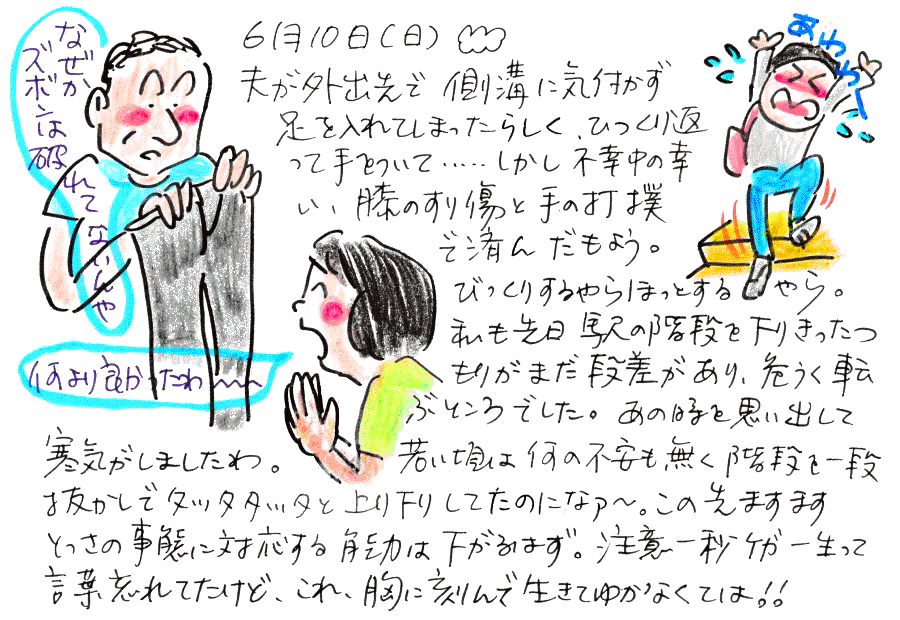 6月10日(日)
夫が外出先で 側溝に気付かず
足を入れてしまったらしく、ひっくり返
って手をついて……しかし不幸中の幸
い、膝のすり傷と手の打撲
で済んだもよう。
びっくりするやらほっとするやら。
私も先日駅の階段を下りきったつ
もりがまだ段差があり、危うく転
ぶところでした。あの時を思い出して
寒気がしましたわ。若い頃は何の不安も無く階段を一段
抜かしでタッタタッタと上り下りしてたのになァ〜。この先ますます
とっさの事態に対応する能力は下がるはず。注意一秒ケガ一生って
言葉忘れてたけど、これ、胸に刻んで生きてゆかなくては!!
なぜか
ズボンは破
れて
ないんや
何より良かったわ〜〜〜
あわわー